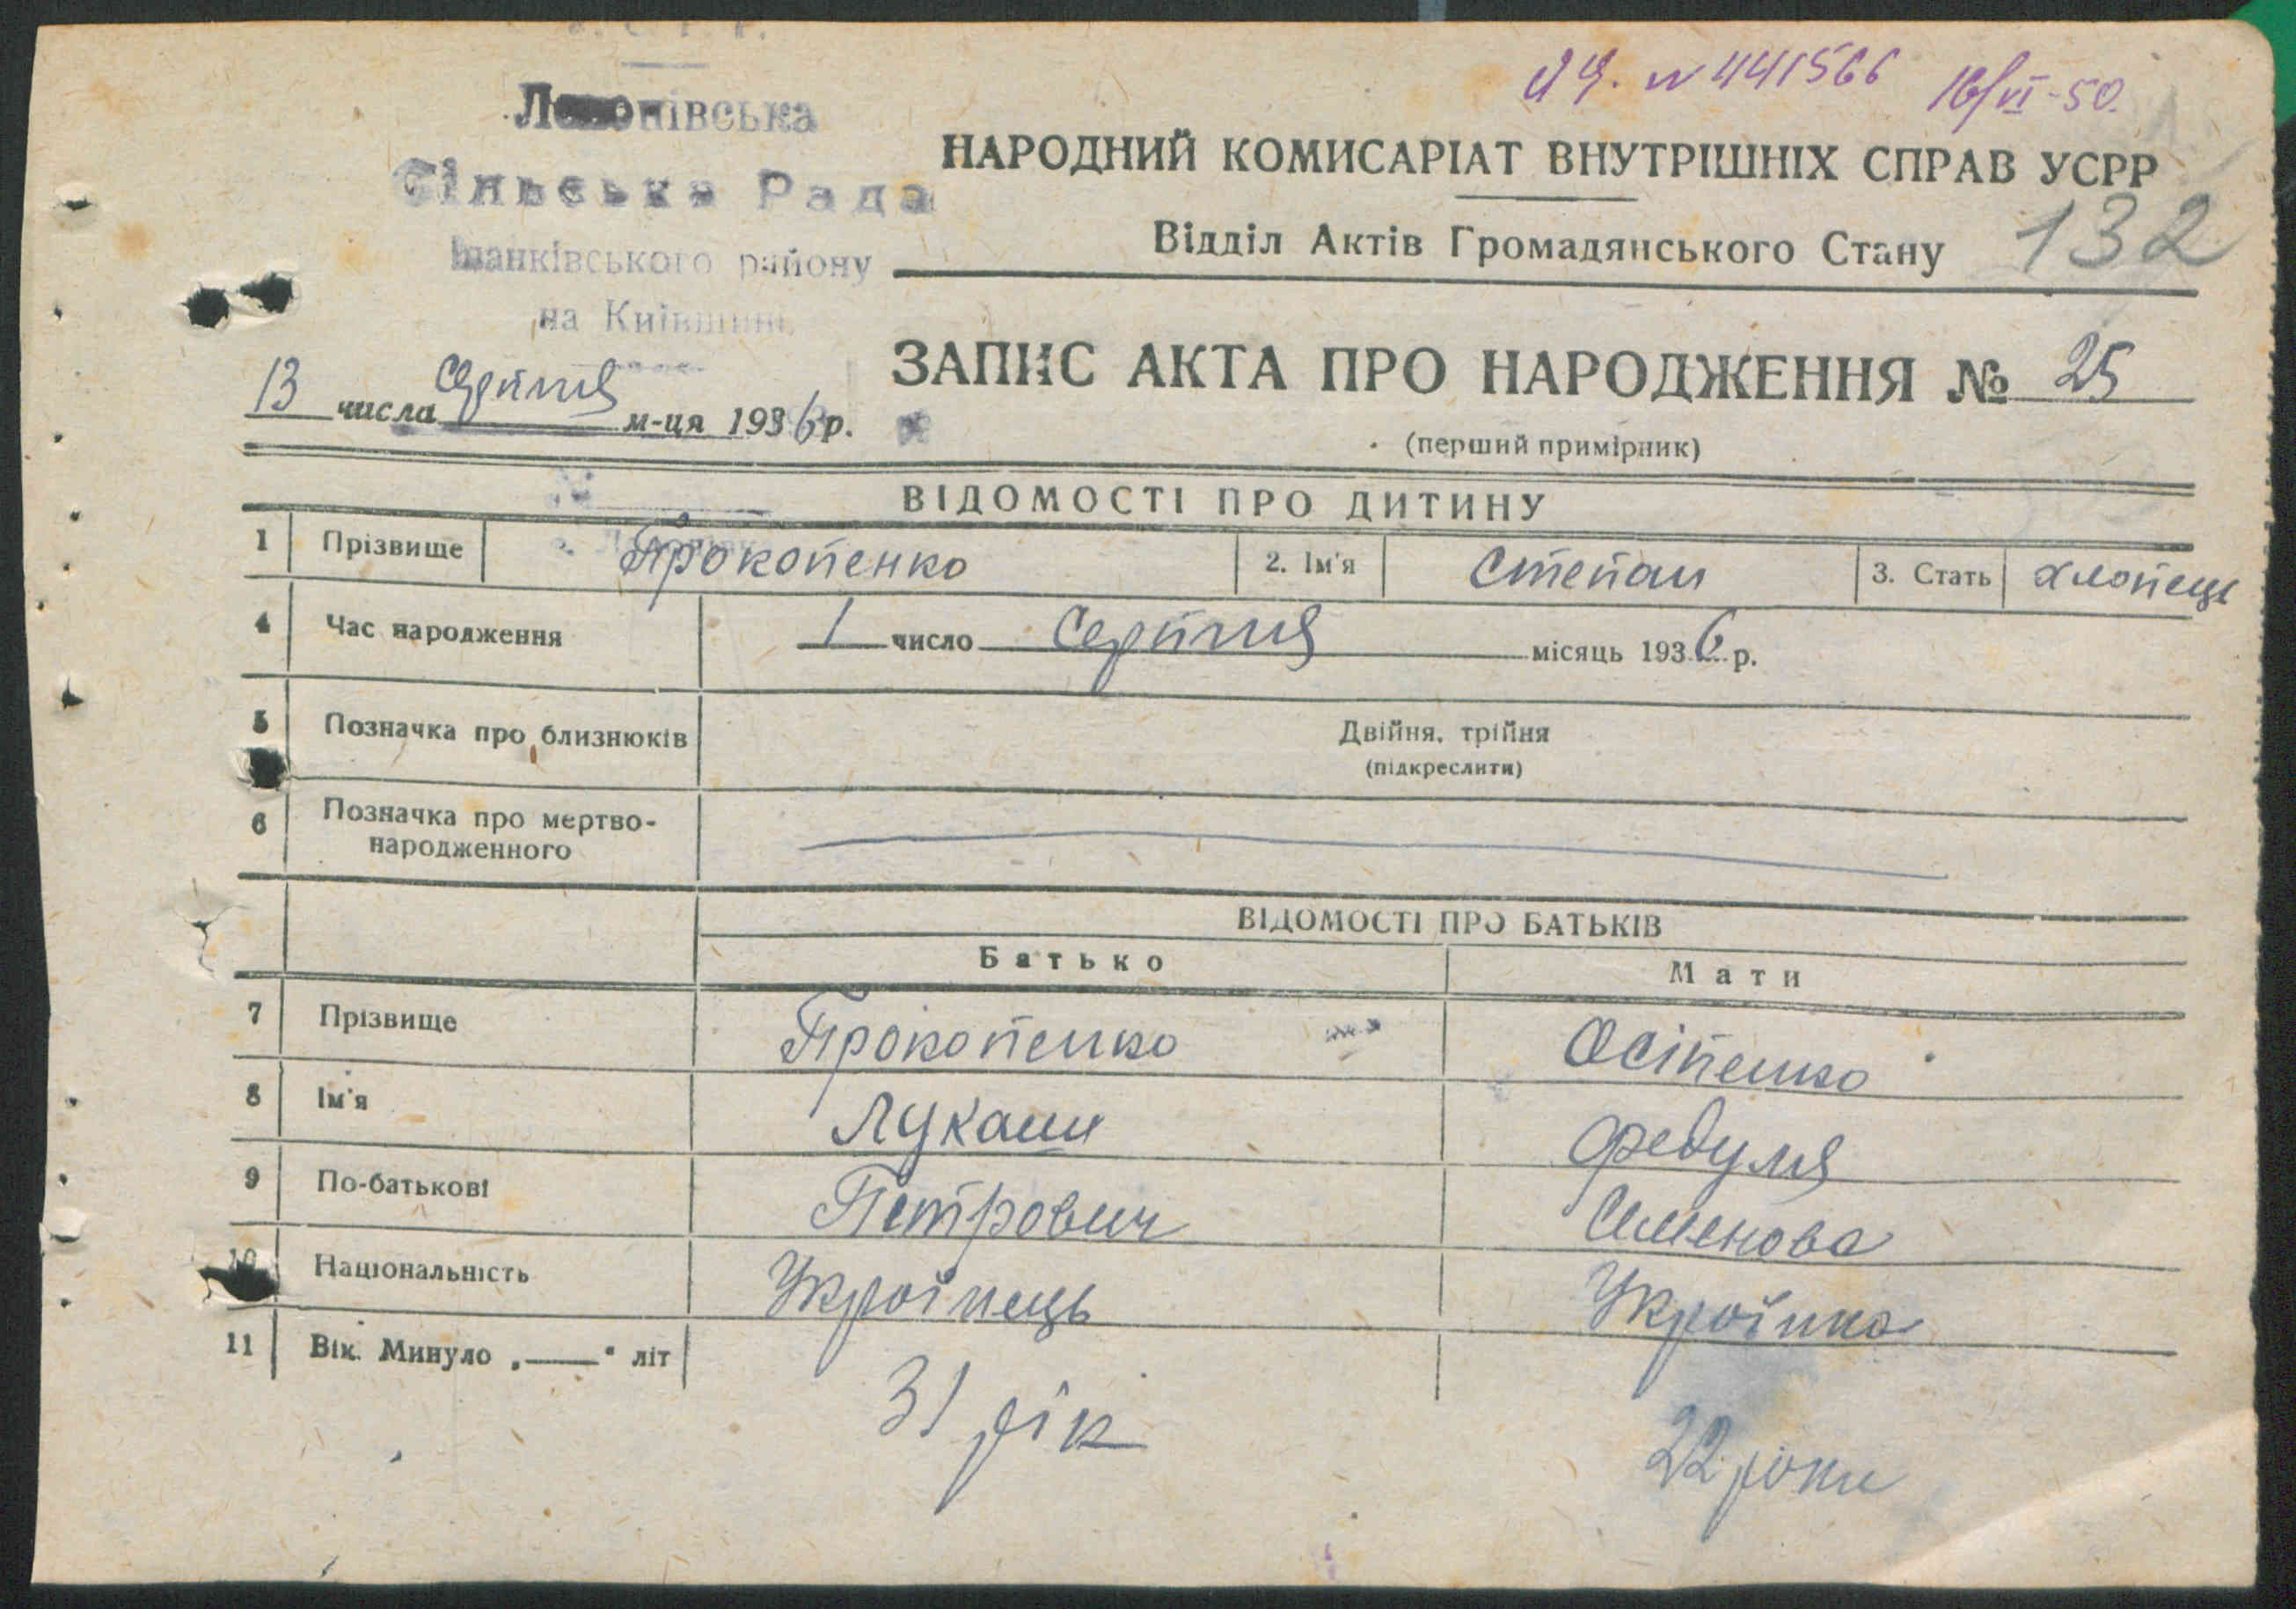 № 441566 16/VI-50.
Сільська Рада
Іванківського району
на Київщині
НАРОДНИЙ КОМИСАРІАТ ВНУТРІШНІХ СПРАВ УСРР
Відділ Актів Громадянського Стану 132
13 числа серпня м-ця 1936 р.
ЗАПИС АКТА ПРО НАРОДЖЕННЯ № 25
(перший примірник)
ВІДОМОСТІ ПРО ДИТИНУ
1 Прізвище Прокопенко 2. Ім'я Степан 3. Стать хлопець
4 Час народження 1 число Серпня місяць 1936 р.
5 Позначка про близнюків Двійня, трійня
(підкреслити)
6 Позначка про мертво-
народженного
ВІДОМОСТІ ПРО БАТЬКІВ
Батько Мати
7 Прізвище Прокопенко Осіпенко
8 Ім'я Лукаш Федуля
9 По-батькові Петрович Семенова
10 Національність Українець Українка
11 Вік. Минуло „——“ літ
31 рік 22 роки